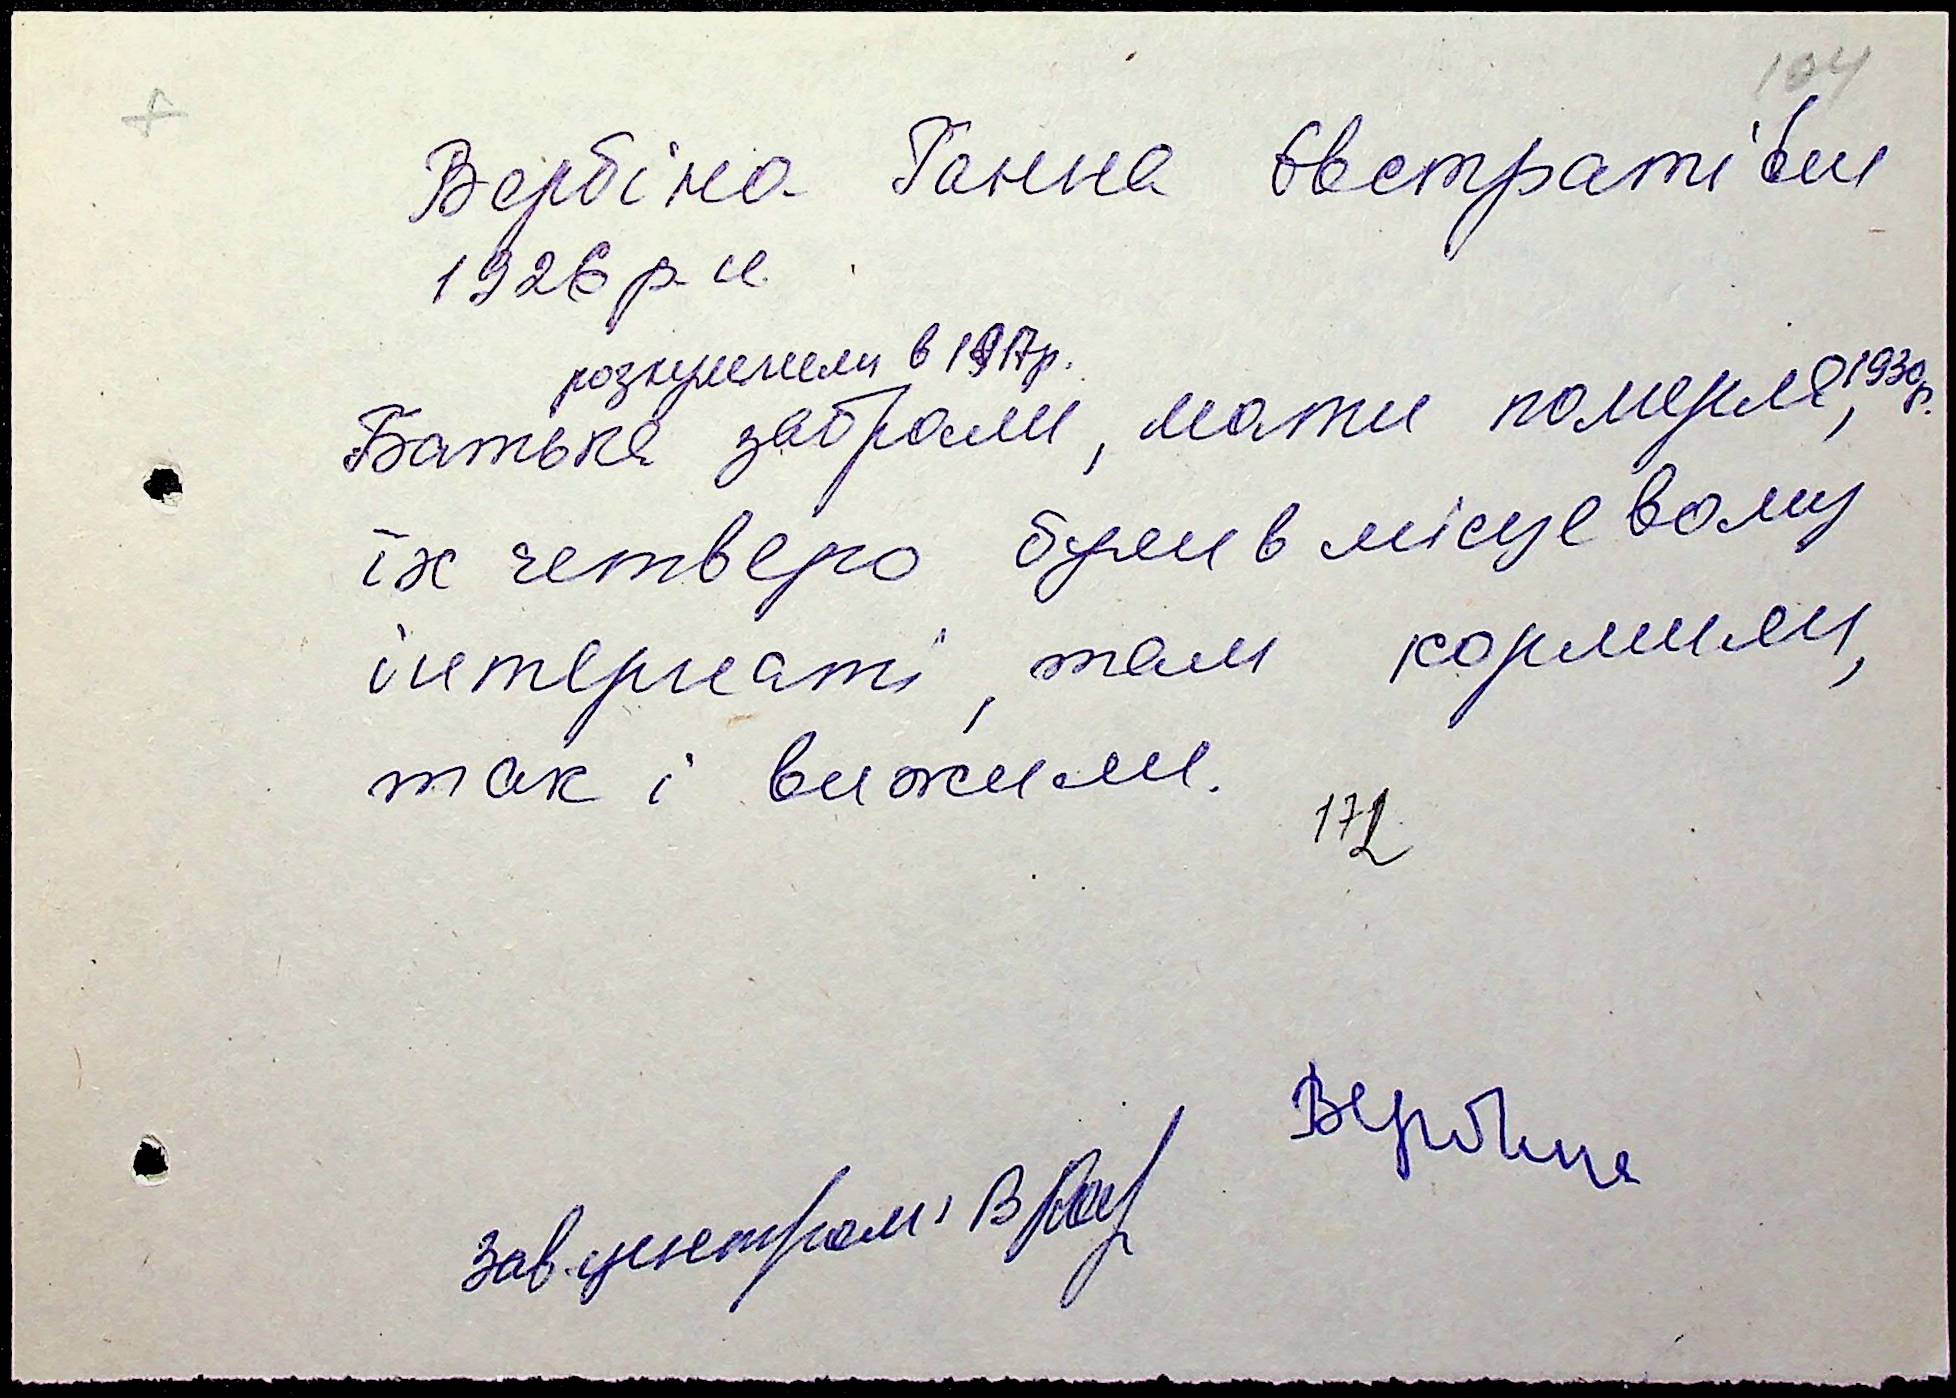 104
Вербіна Ганна Євстратівн
1926 р н.
розкулачили в 1917р.
Батька забрали, мати померла, 1930 р.
їх четверо були в місцевому
інтернаті, там кормили,
так і вижили.
172
Вербіна
Зав. центром: В